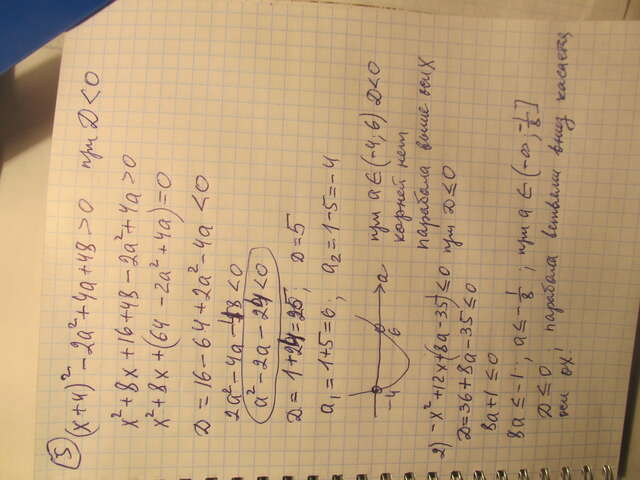 3) (x+4)² - 2a² + 4a + 48 > 0 при D < 0
x² + 8x + 16 + 48 - 2a² + 4a > 0
x² + 8x + (64 - 2a² + 4a) = 0
D = 16 - 64 + 2a² - 4a < 0
2a² - 4a - 48 < 0
a² - 2a - 24 < 0
D = 1 + 24 = 25; D = 5
a₁ = 1 + 5 = 6; a₂ = 1 - 5 = -4
-4 6 a
при a ∈ (-4; 6) D < 0
корней нет
парабола выше оси X
2) -x² + 12x + (8a - 35) ≤ 0 при D ≤ 0
D = 36 + 8a - 35 ≤ 0
8a + 1 ≤ 0
8a ≤ -1; a ≤ -1/8; при a ∈ (-∞; -1/8]
D ≤ 0 парабола ветвями вниз касается
оси ox!